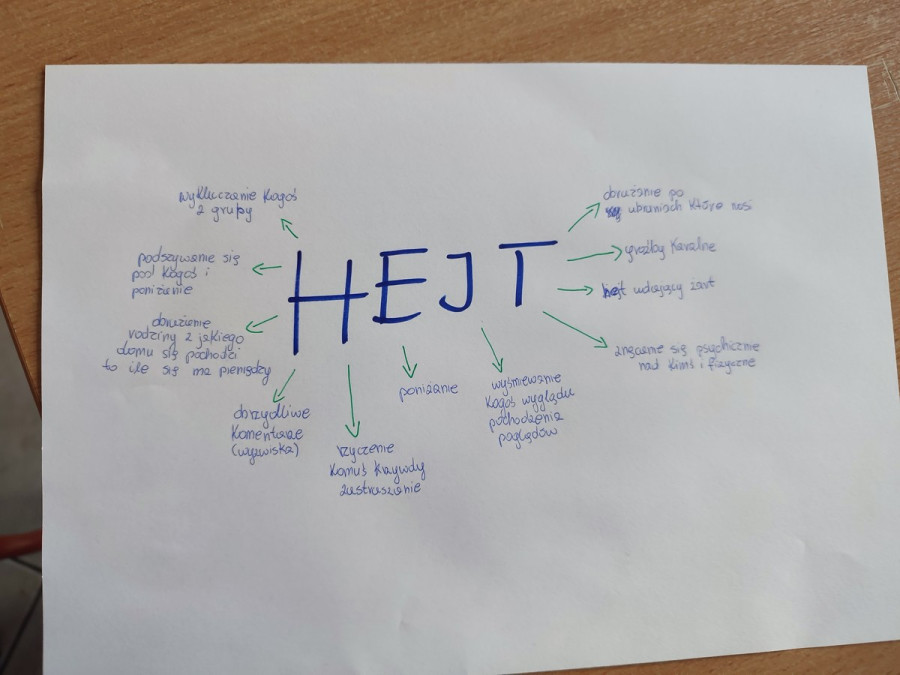 wykluczenie kogoś
z grupy
podszywanie się
pod kogoś i
poniżanie
obrażenie
rodziny z jakiego
domu się pochodzi
to ile się ma pieniędzy
obrzydliwe
komentarze
(wyzwiska)
HEJT
życzenie
komuś krzywdy
zastraszanie
poniżanie
wyśmiewanie
kogoś wyglądu
pochodzenia
poglądów
obrażanie po
ubraniach które nosi
groźby karalne
hejt udający żart
znęcanie się psychicznie
nad kimś i fizyczne